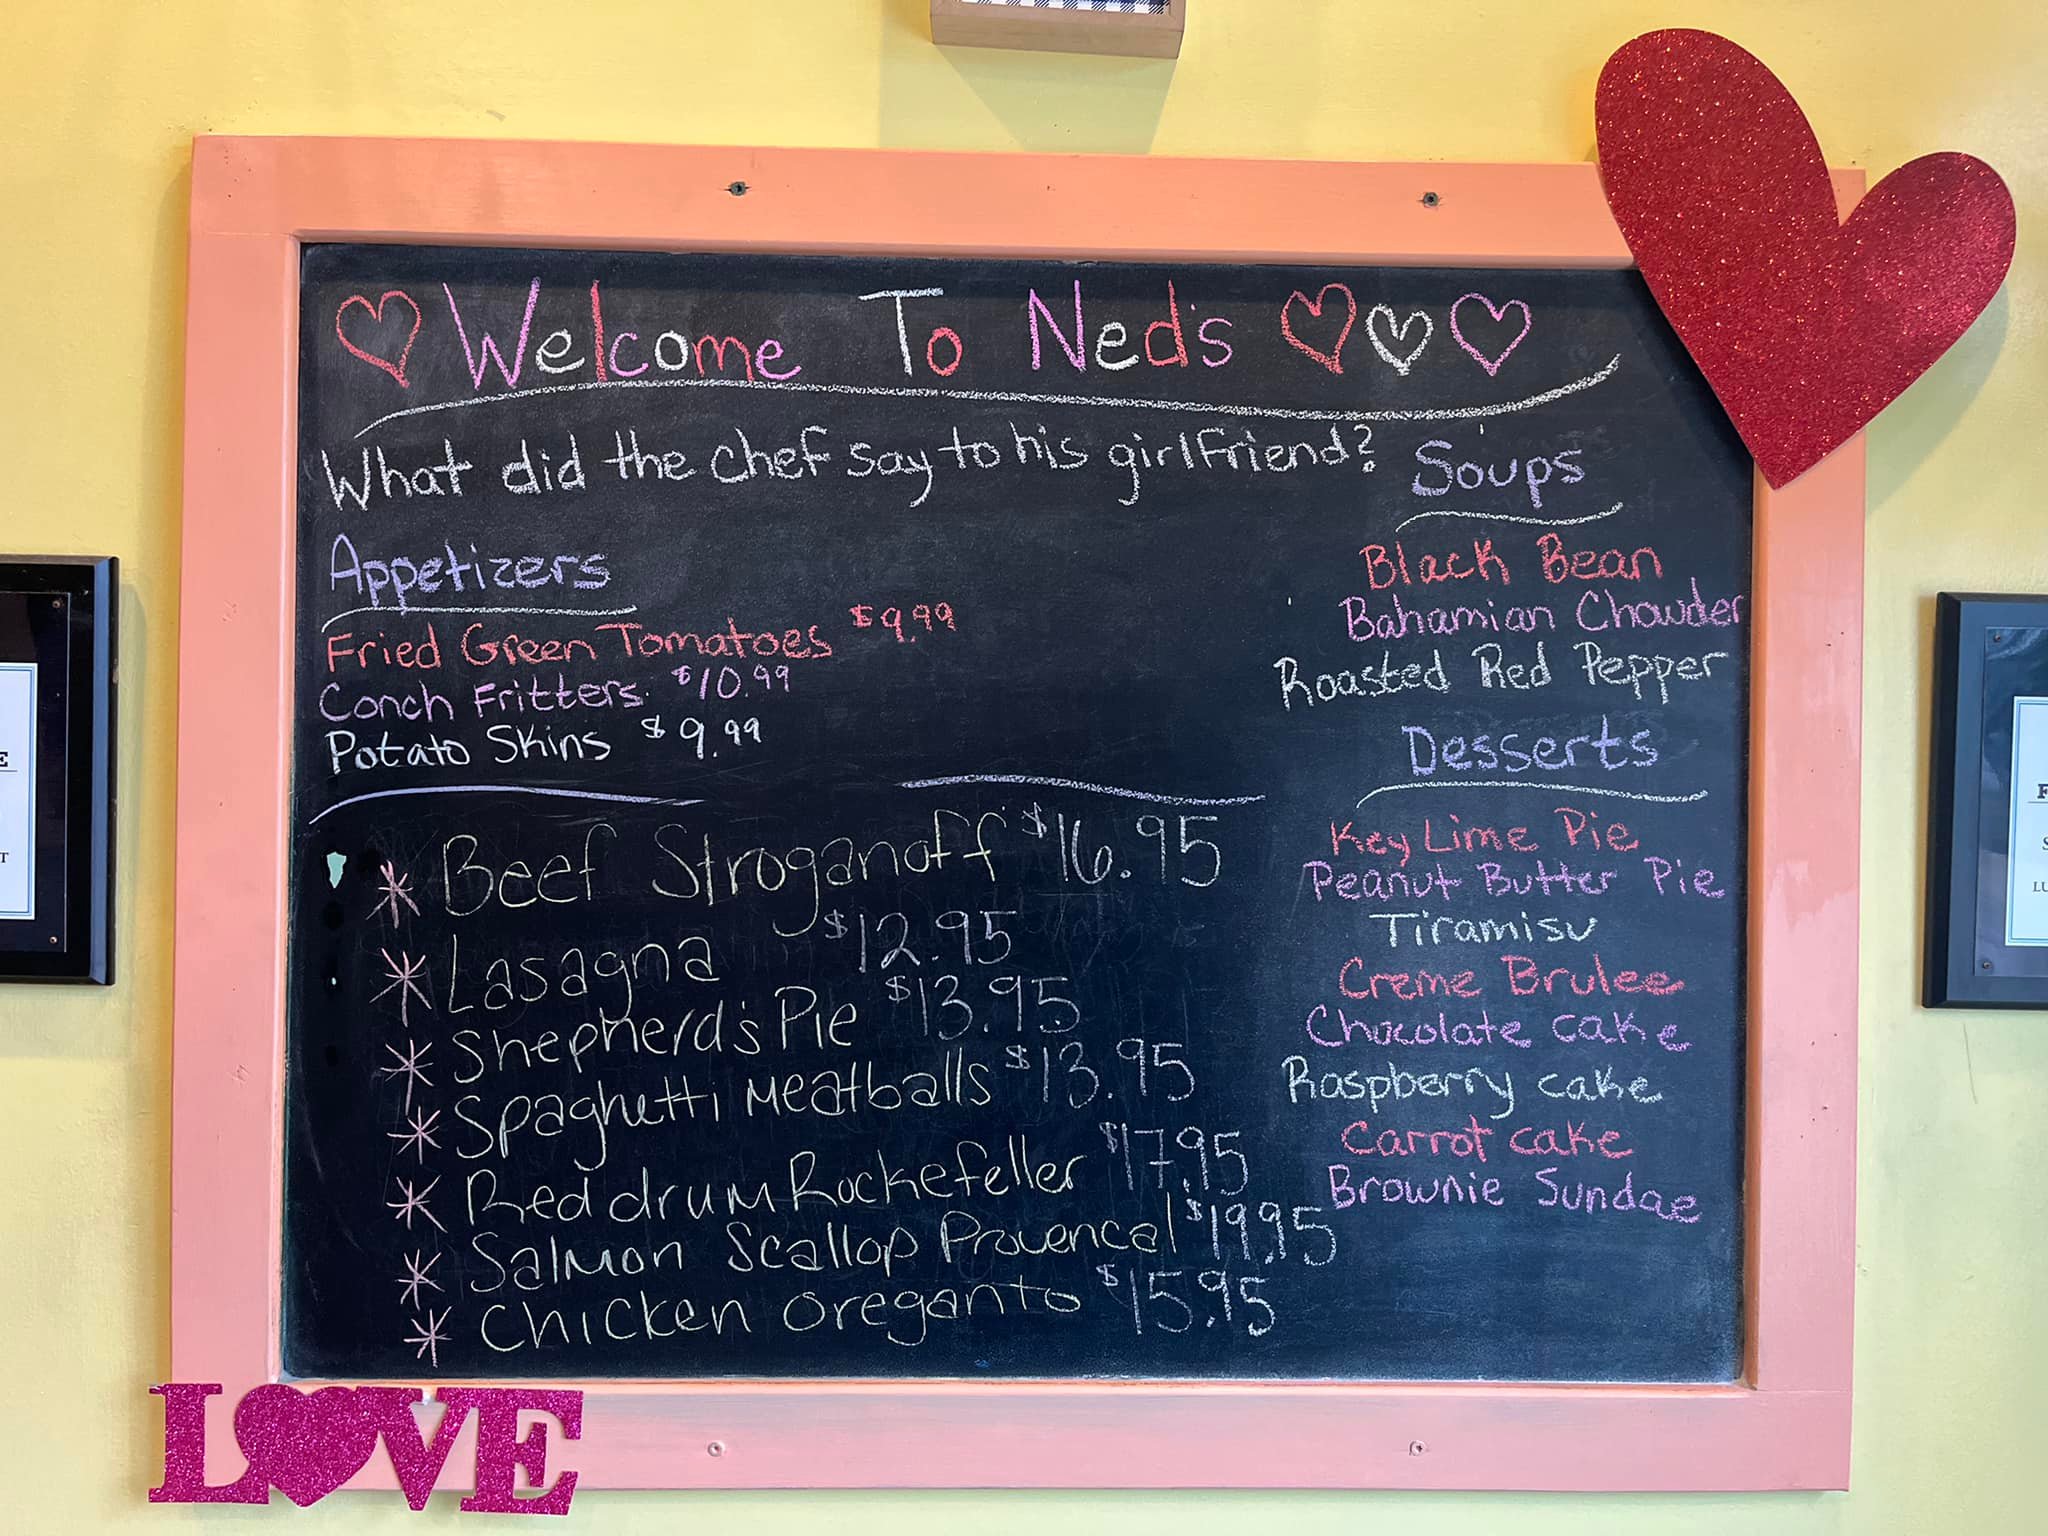 Welcome To Ned's
What did the chef say to his girlfriend?
Appetizers
Fried Green Tomatoes $9.99
Conch Fritters $10.99
Potato Skins $9.99
* Beef Stroganoff $16.95
* Lasagna $12.95
* Shepherd's Pie $13.95
* Spaghetti Meatballs $13.95
* Red drum Rockefeller $17.95
* Salmon Scallop Provencal $19.95
* Chicken oreganto $15.95
Soups
Black Bean
Bahamian Chowder
Roasted Red Pepper
Desserts
Key Lime Pie
Peanut Butter Pie
Tiramisu
Creme Brulee
Chocolate cake
Raspberry cake
Carrot cake
Brownie Sundae
LOVE